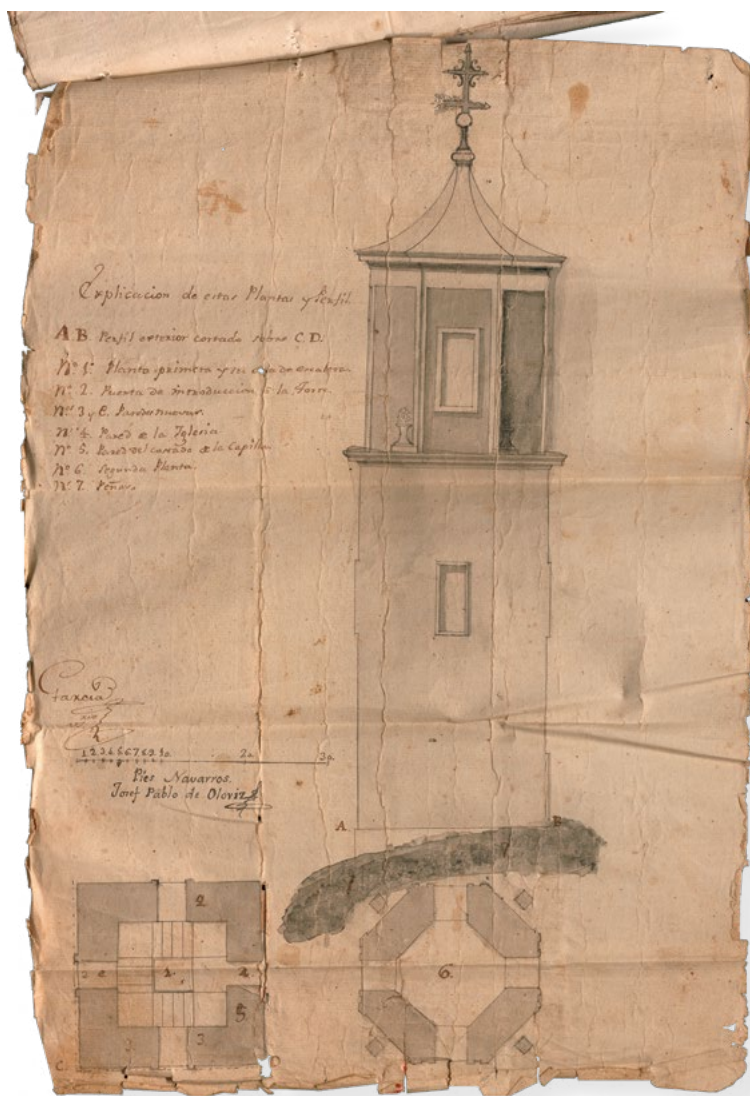 Explicacion de estas Plantas y Perfil
A.B. Perfil exterior cortado sobre C.D.
Nº. 1º. Planta primera y su caja de escalera.
Nº. 2. Puerta de introduccion à la Torre.
Nº. 3 y e. Paredes nuevas.
Nº. 4. Pared de la Iglesia
Nº. 5. Pared del costado de la Capilla
Nº. 6. segunda Planta.
Nº. 7. Peñas.
Garcia
1 2 3 4 5 6 7 8 9 10 20 30
Pies Navarros.
Josef Pablo de Oloriz
A B
2
e 1. 4 6.
5
3 3
C D